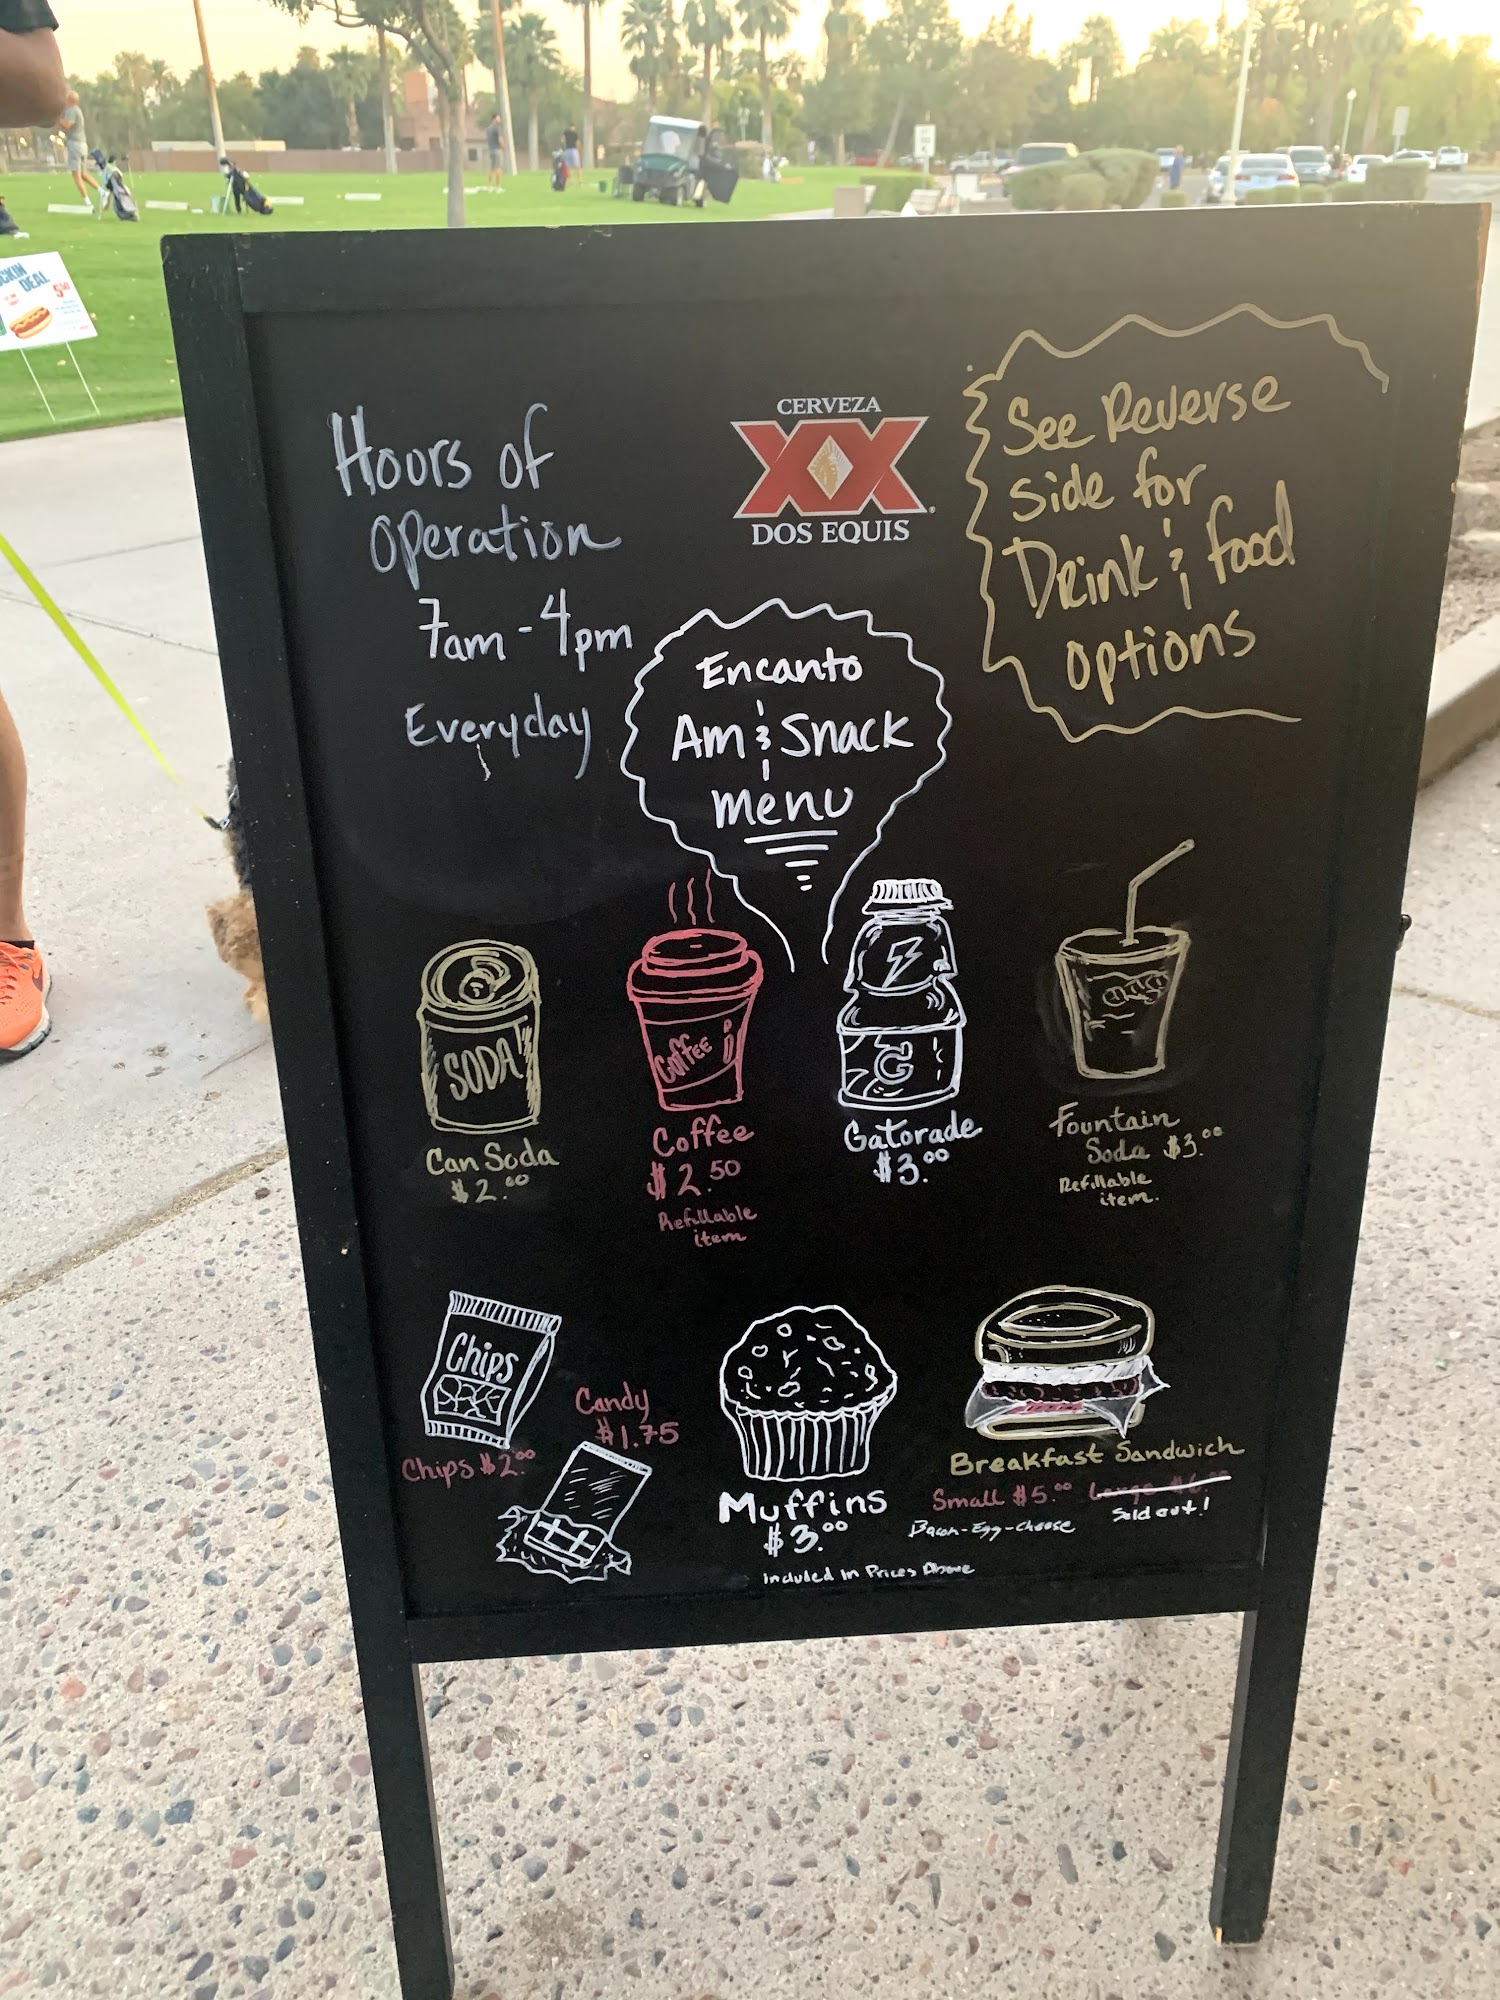 DEAL
Hours of
operation
7am-4pm
Everyday
CERVEZA
XX
DOS EQUIS
See Reverse
side for
Drink & food
options
Encanto
Am & Snack
menu
SODA!
Can Soda
$2.00
Coffee
Coffee
$2.50
Refillable
item
G
Gatorade
$3.00
Fountain
Soda $3.00
Refillable
item.
Chips
Chips $2.00
Candy
$1.75
Muffins
$3.00
Breakfast Sandwich
Small $5.00 Large $6.00
Bacon-Egg-cheese Sold out!
included in Prices Above